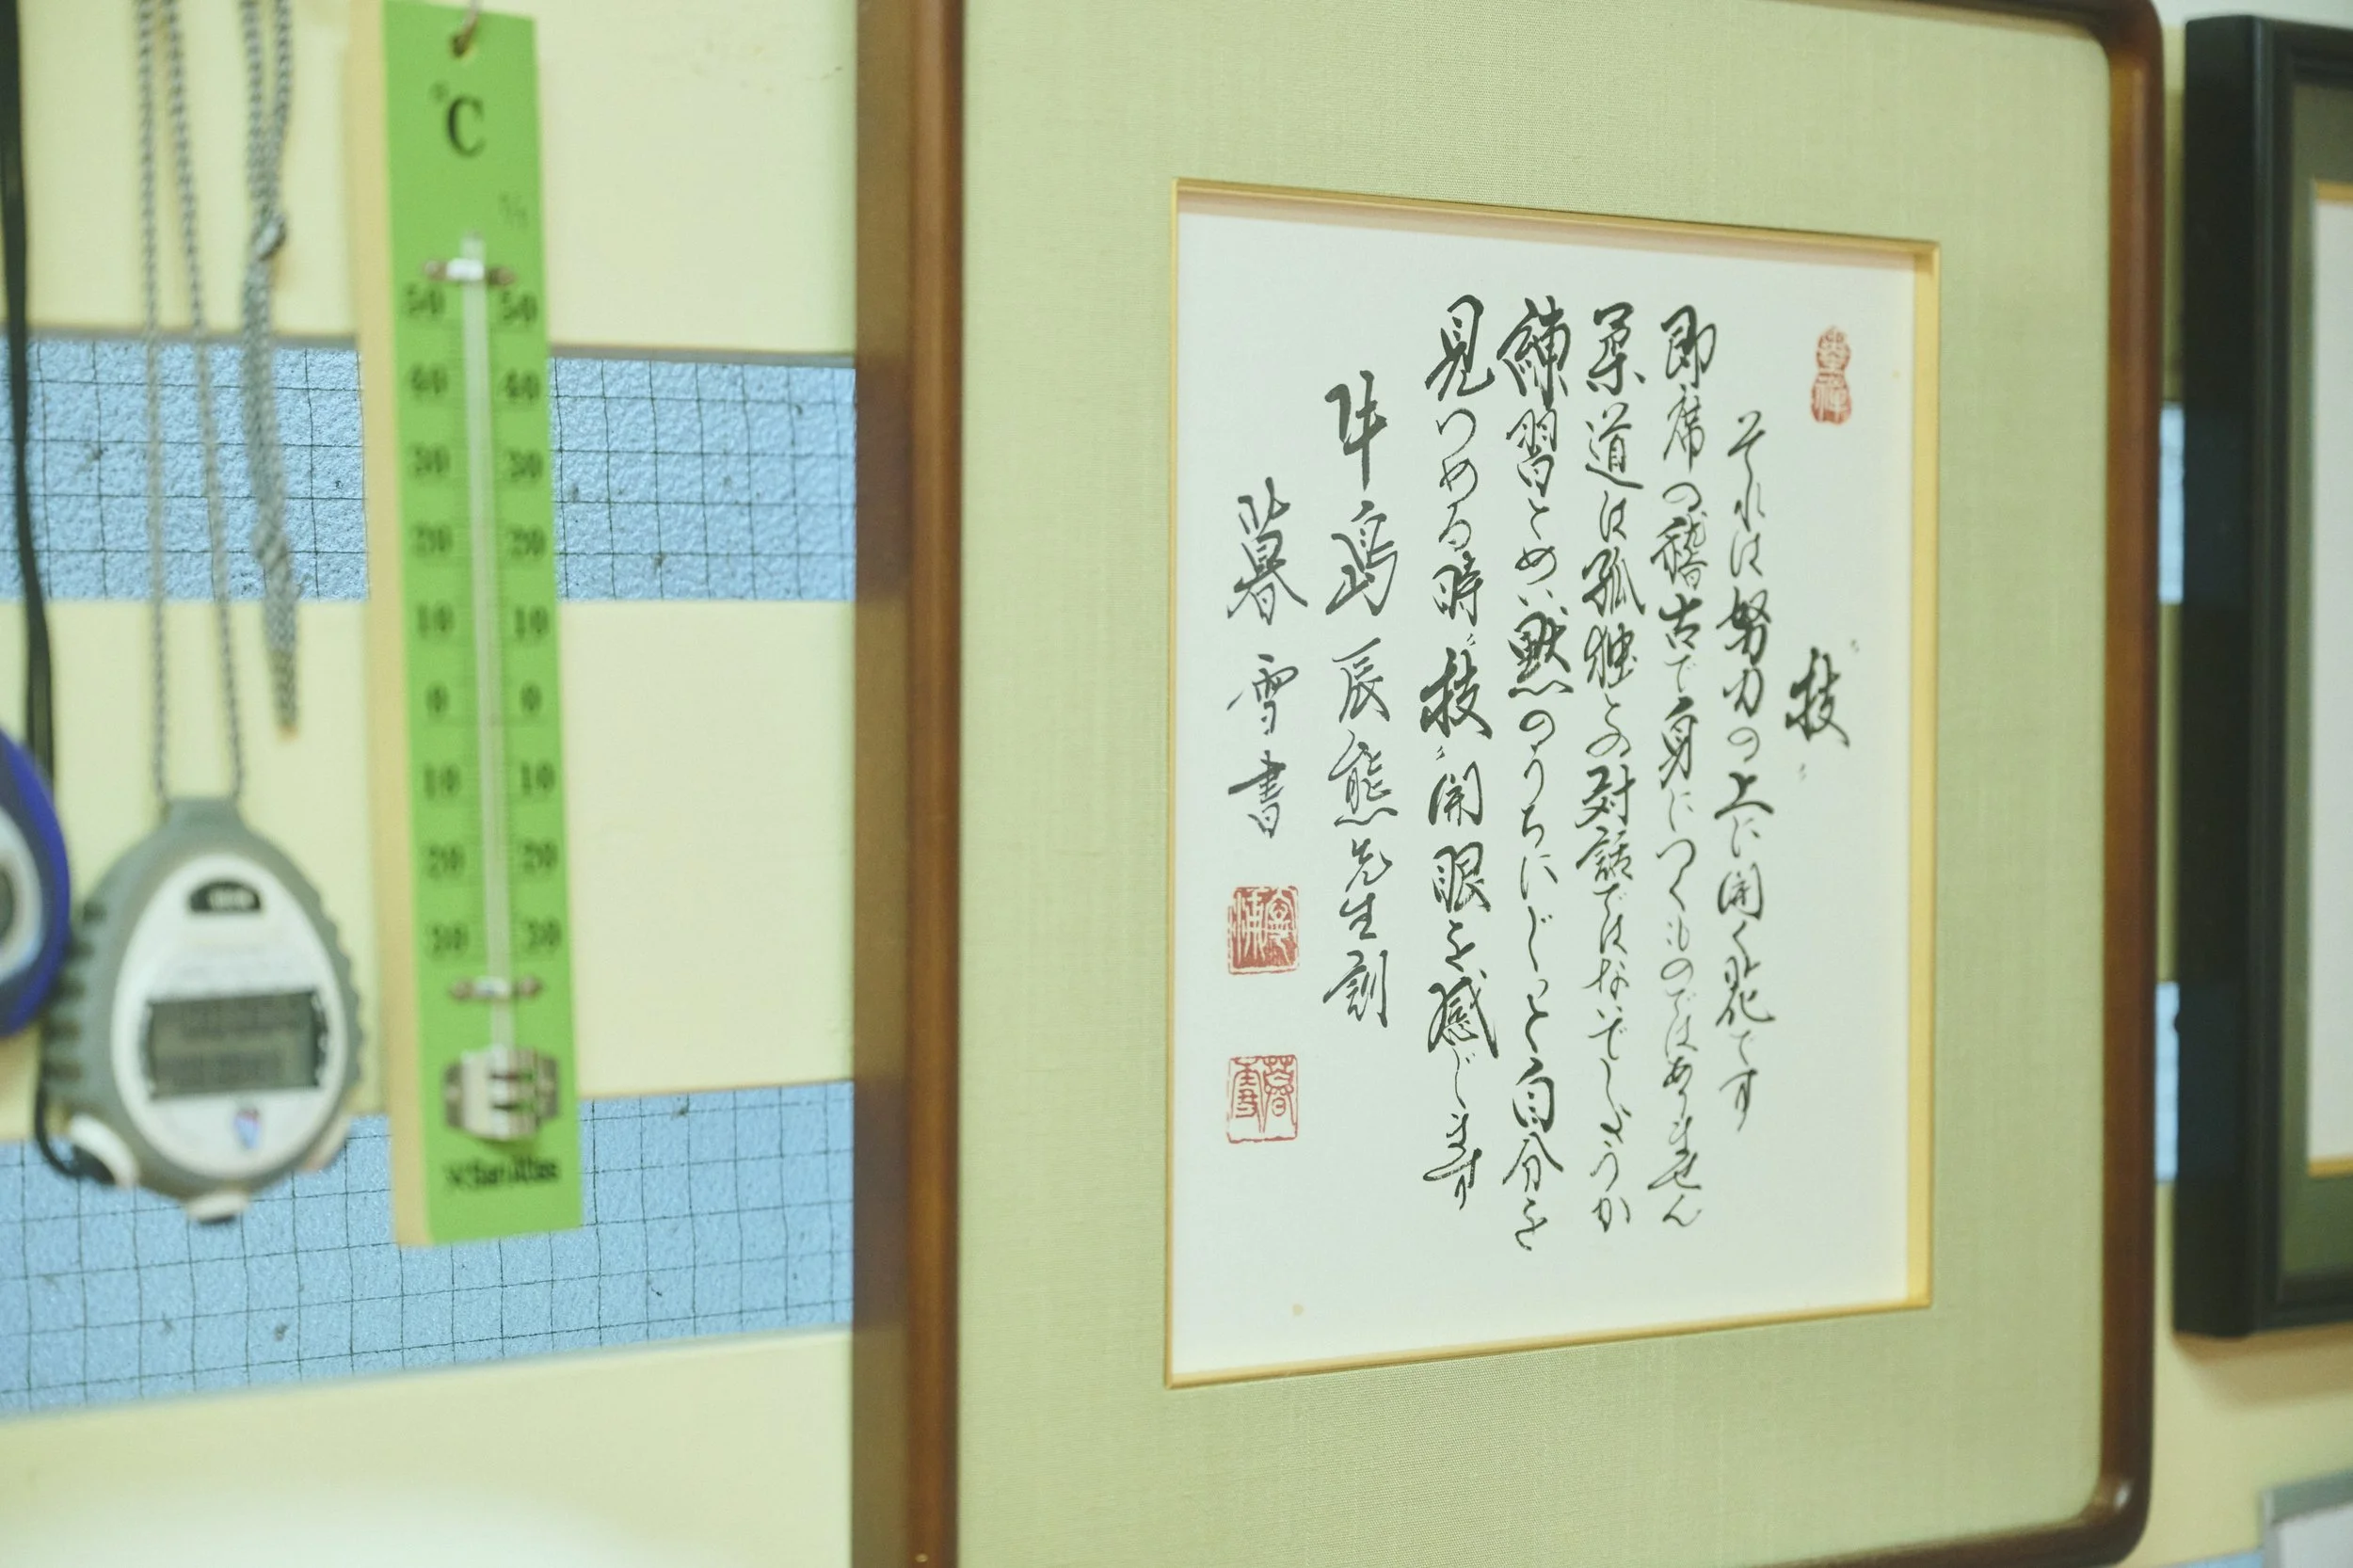 °C
50 50
40 40
30 30
20 20
10 10
0 0
10 10
20 20
30 30
〝技〟
それは努力の上に開く花です
即席の稽古で身につくものではありません
柔道は孤独との対話ではないでしょうか
練習とめい黙のうちにじっと自分を
見つめる時〝技〟開眼を感じます
牛島辰熊先生訓
暮雪書
暮雪